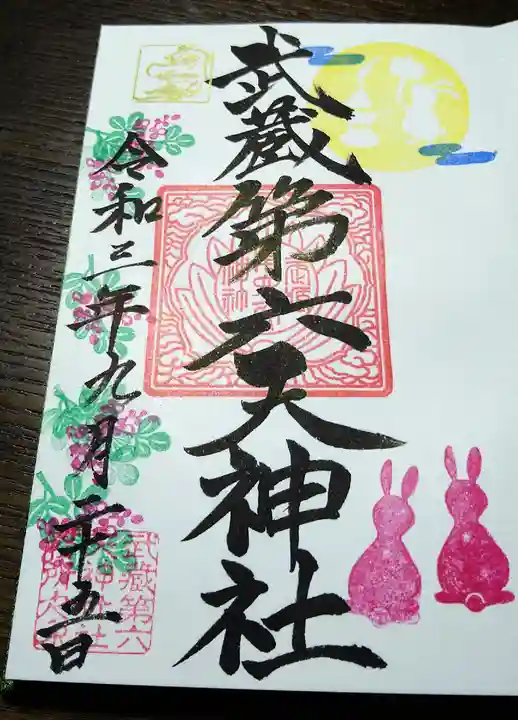 武蔵第六天神社
令和三年九月二十五日
武蔵第六